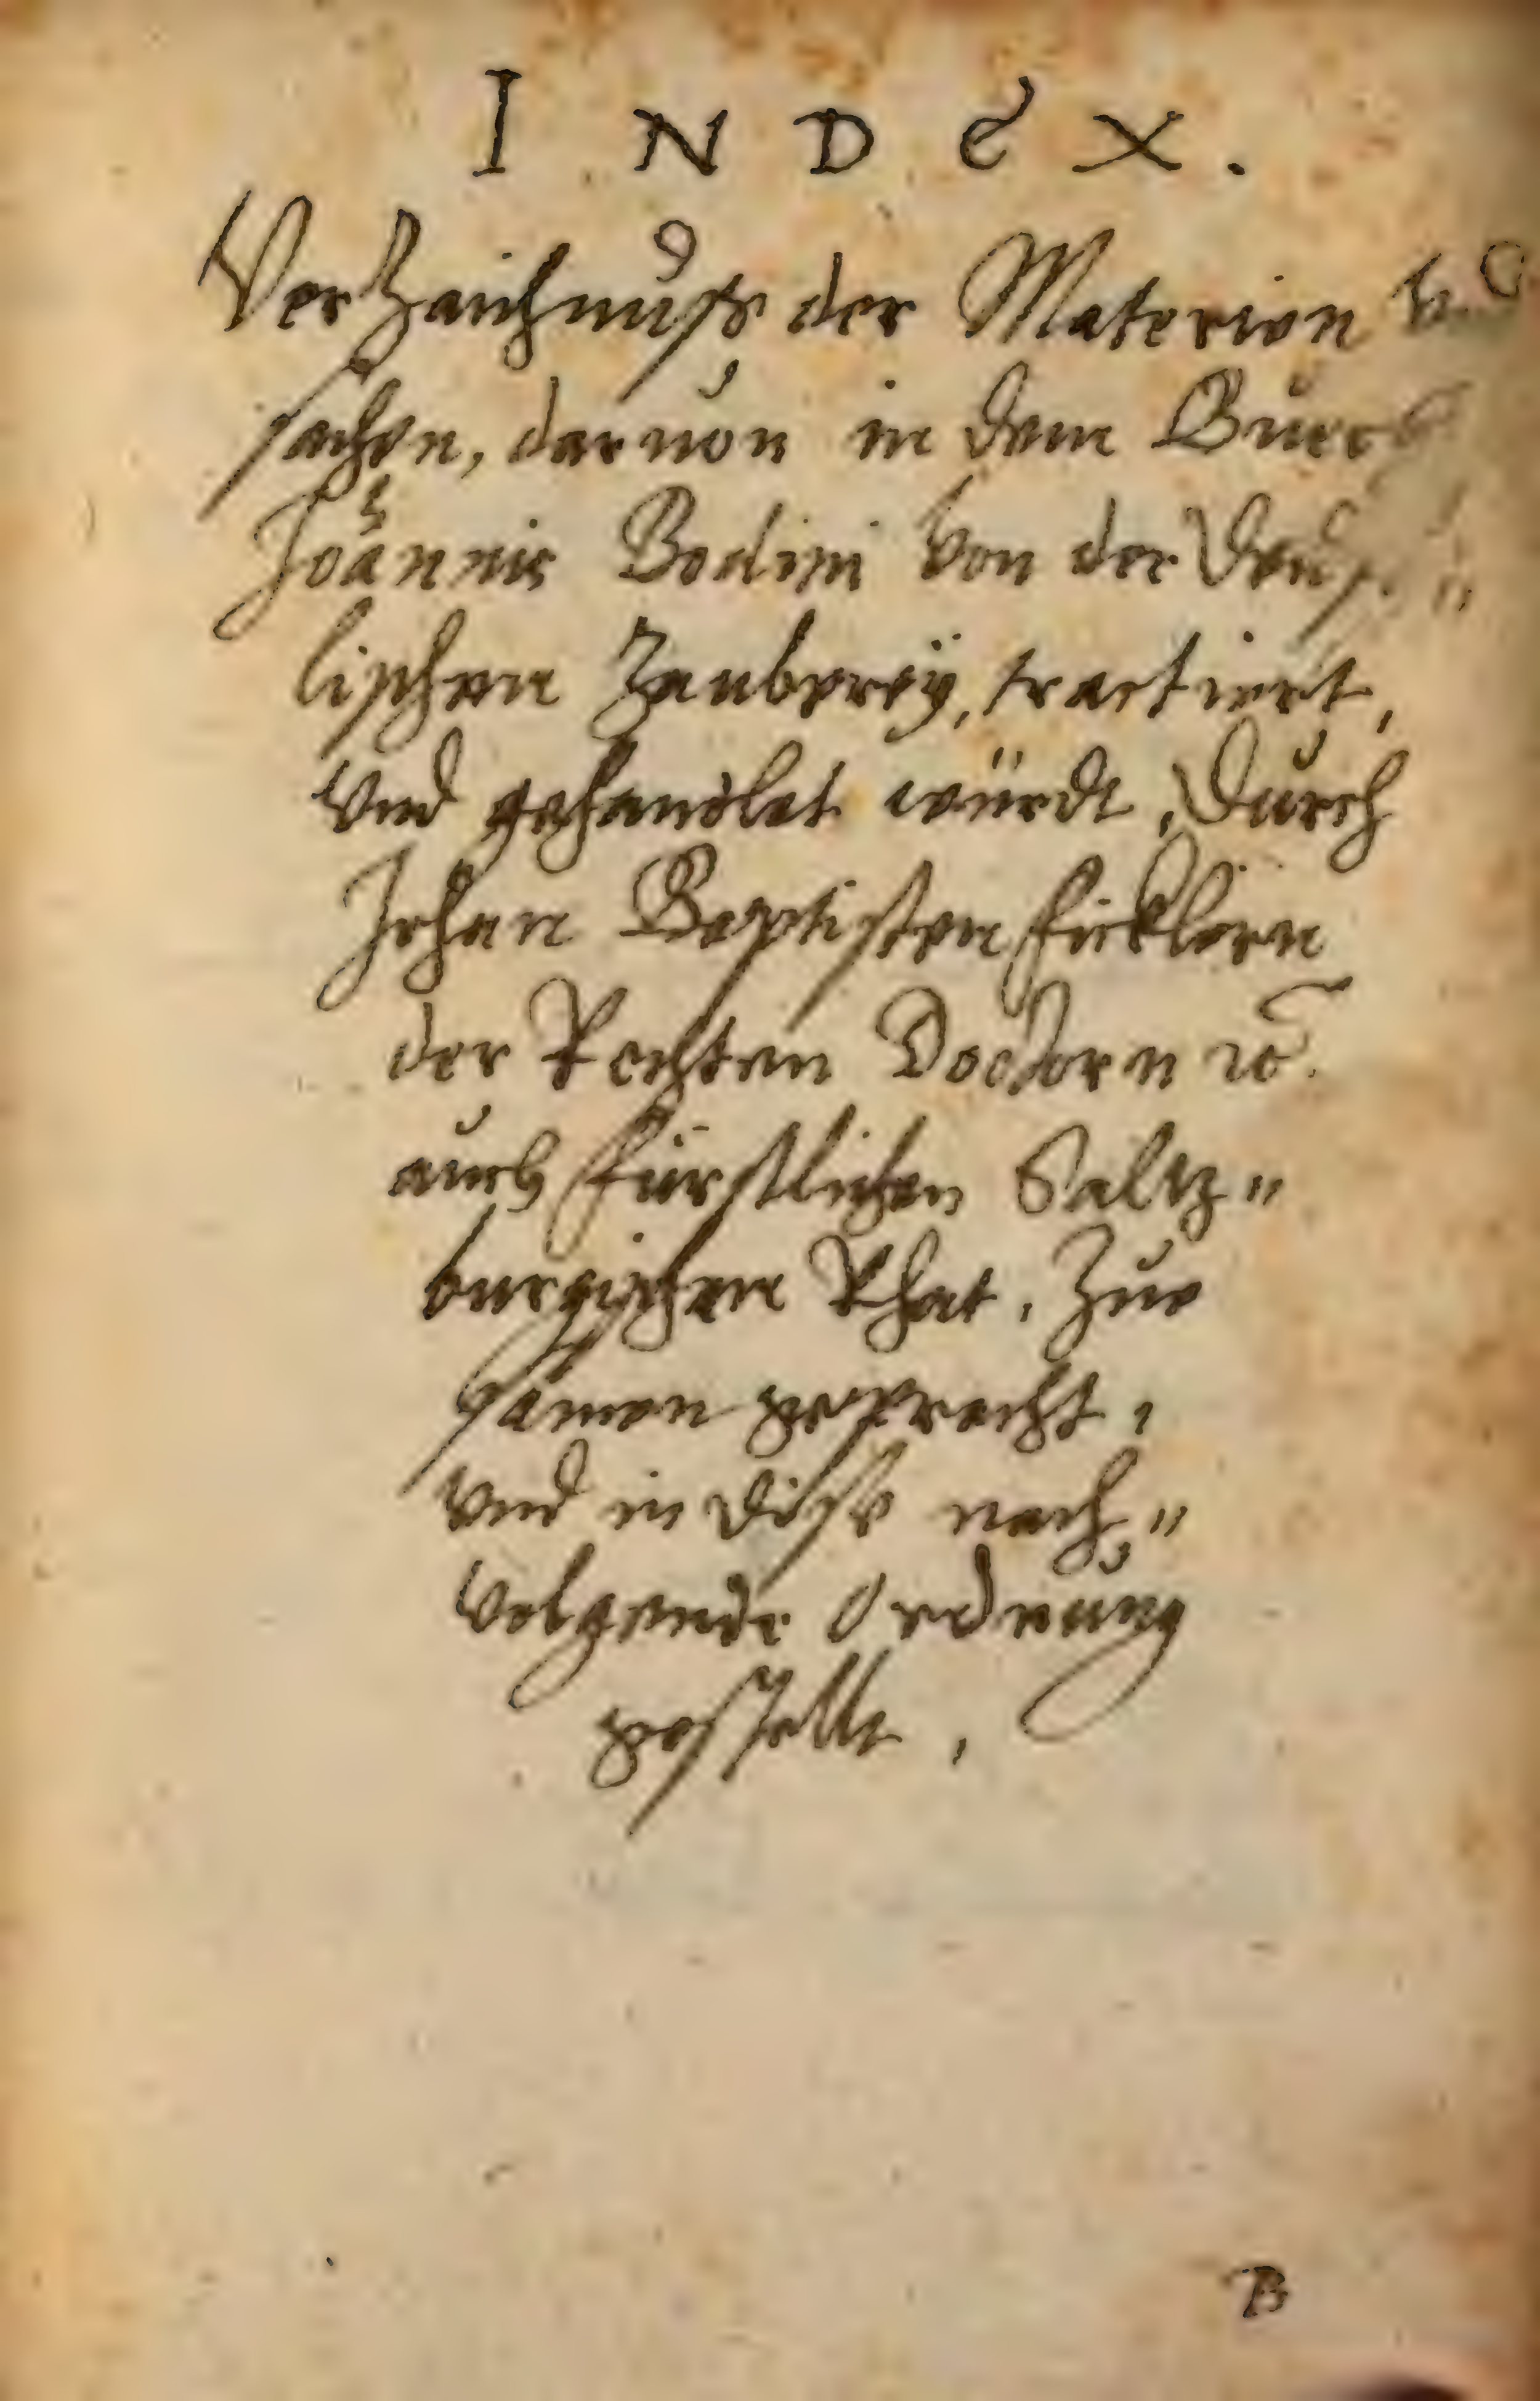 INDEX.
Verzaichnuß der Materien vnd
sachen, daruon in dem Buech
Joannis Bodini von der Teuf„
lischen Zauberey, tractiert,
vnd gehandlet würdt, Durch
Johan Baptisten Ficklern
der Rechten Doctorn ꝛc.
auch fürstlichen Saltz„
burgischen Rhat, Zue
samen gepracht,
vnd in dise nach„
volgende Ordnung
gestellt,
B